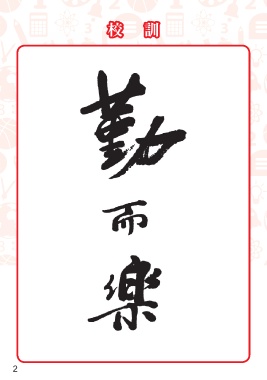 校訓
勤
而
樂
2